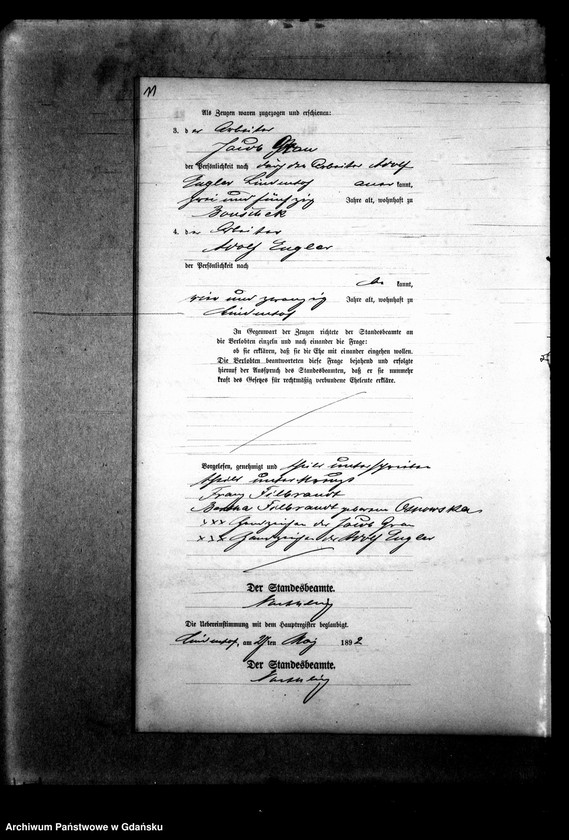 Als Zeugen waren zugezogen und erschienen:
3. der Arbeiter
Jacob Grau
der Persönlichkeit nach durch den Arbeiter Adolf
Engler Lindenhof aner kannt,
drei und fünfzig Jahre alt, wohnhaft zu
4. der Arbeiter
Adolf Engler
der Persönlichkeit nach
be kannt,
vier und zwanzig Jahre alt, wohnhaft zu
Lindenhof
In Gegenwart der Zeugen richtete der Standesbeamte an
die Verlobten einzeln und nach einander die Frage:
ob sie erklären, daß sie die Ehe mit einander eingehen wollen.
Die Verlobten beantworteten diese Frage bejahend und erfolgte
hierauf der Ausspruch des Standesbeamten, daß er sie nunmehr
kraft des Gesetzes für rechtmäßig verbundene Eheleute erkläre.
Vorgelesen, genehmigt und theils unterschrieben
theils unterkreuzt
Franz Filbrandt
Filbrandt geborene
xxx Handzeichen des Jacob Grau
xxx Handzeichen des Adolf Engler
Der Standesbeamte.
Die Uebereinstimmung mit dem Hauptregister beglaubigt.
Lindenhof, am ten Mai 1892
Der Standesbeamte.
Archiwum Państwowe w Gdańsku